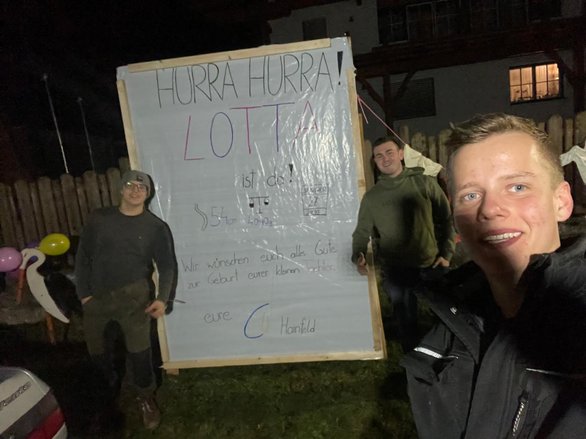 HURRA HURRA!
LOTTA
ist da!
54cm
Wir wünschen euch alles Gute
zur Geburt eurer kleinen
eure CU Hainfeld